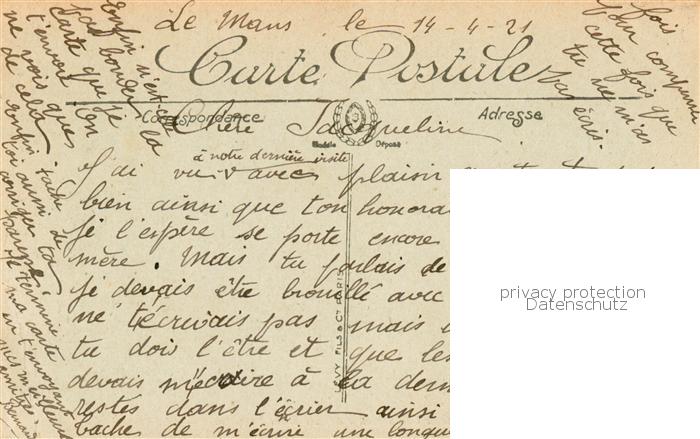 Le Mans le 14-4-21
Carte Postale
Correspondance
Adresse
Modèle Déposé
Chère Jacqueline
à notre dernière visite
J'ai vu avec plaisir
bien ainsi que ton honora
je l'espère se porte encore
mère. Mais tu parlais de
je devais être brouillé avec
ne t'écrivais pas mais
tu dois l'être et que les
devais m'écrire à la dern
restes dans l'écrier ainsi
tache de m'écrire une longu
LEVY FILS & Cie PARIS
fois
pour comprendre
cette fois que
tu ne m'as
pas écris.
Enfin n'est-ce
pas bouder la
carte que je
t'envoie ton
ne vois que
de cela
enfin tache
toi aussi de
corriger ta
je termine
ma carte
en t'envoyant
mes meilleures
amitiés
privacy protection
Datenschutz